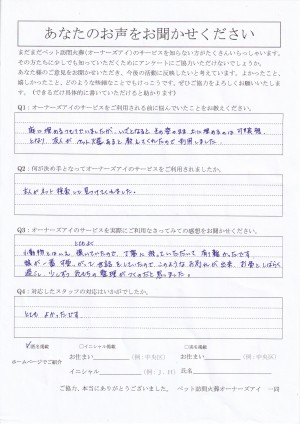 あなたのお声をお聞かせください
まだまだペット訪問火葬(オーナーズアイ)のサービスを知らない方がたくさんいらっしゃいます。
その方たちに少しでも知っていただくためにアンケートにご協力いただけないでしょうか。
あなた様のご意見をお聞かせいただき、今後の活動に反映したいと考えています。よかったこと、
嬉しかったこと、どのような些細なことでもけっこうです。ぜひご協力をよろしくお願いいたし
ます。(できるだけ具体的に書いていただけると助かります)
Q1:オーナーズアイのサービスをご利用される前に悩んでいたことをお教えください。
庭に埋めるつもりでいましたが、いざとなると
となり、友人が ペット火葬あると 教えてくれたので 利用しました
Q2:何が決め手となってオーナーズアイのサービスをご利用されましたか。
友人がネット検索して見つけてくれました。
Q3:オーナーズアイのサービスを実際にご利用なさってみての感想をお聞かせください。
小動物とはいえ、
丁寧に扱っていただいて 有り難かったです
娘が一番 可愛がって 世話をしていたので このような お別れが出来、お骨としばらく
過ごし、少しずつ 気もちの整理がつくのだと思いました。
Q4:対応したスタッフの対応はいかがでしたか。
とても よかったです
ホームページでご紹介
✓匿名掲載 □イニシャル掲載 □実名掲載
お住まい (例:中央区) お住まい (例:中央区)
イニシャル (例:J.H) 氏名
ご協力、本当にありがとうございました。 ペット訪問火葬オーナーズアイ 一同